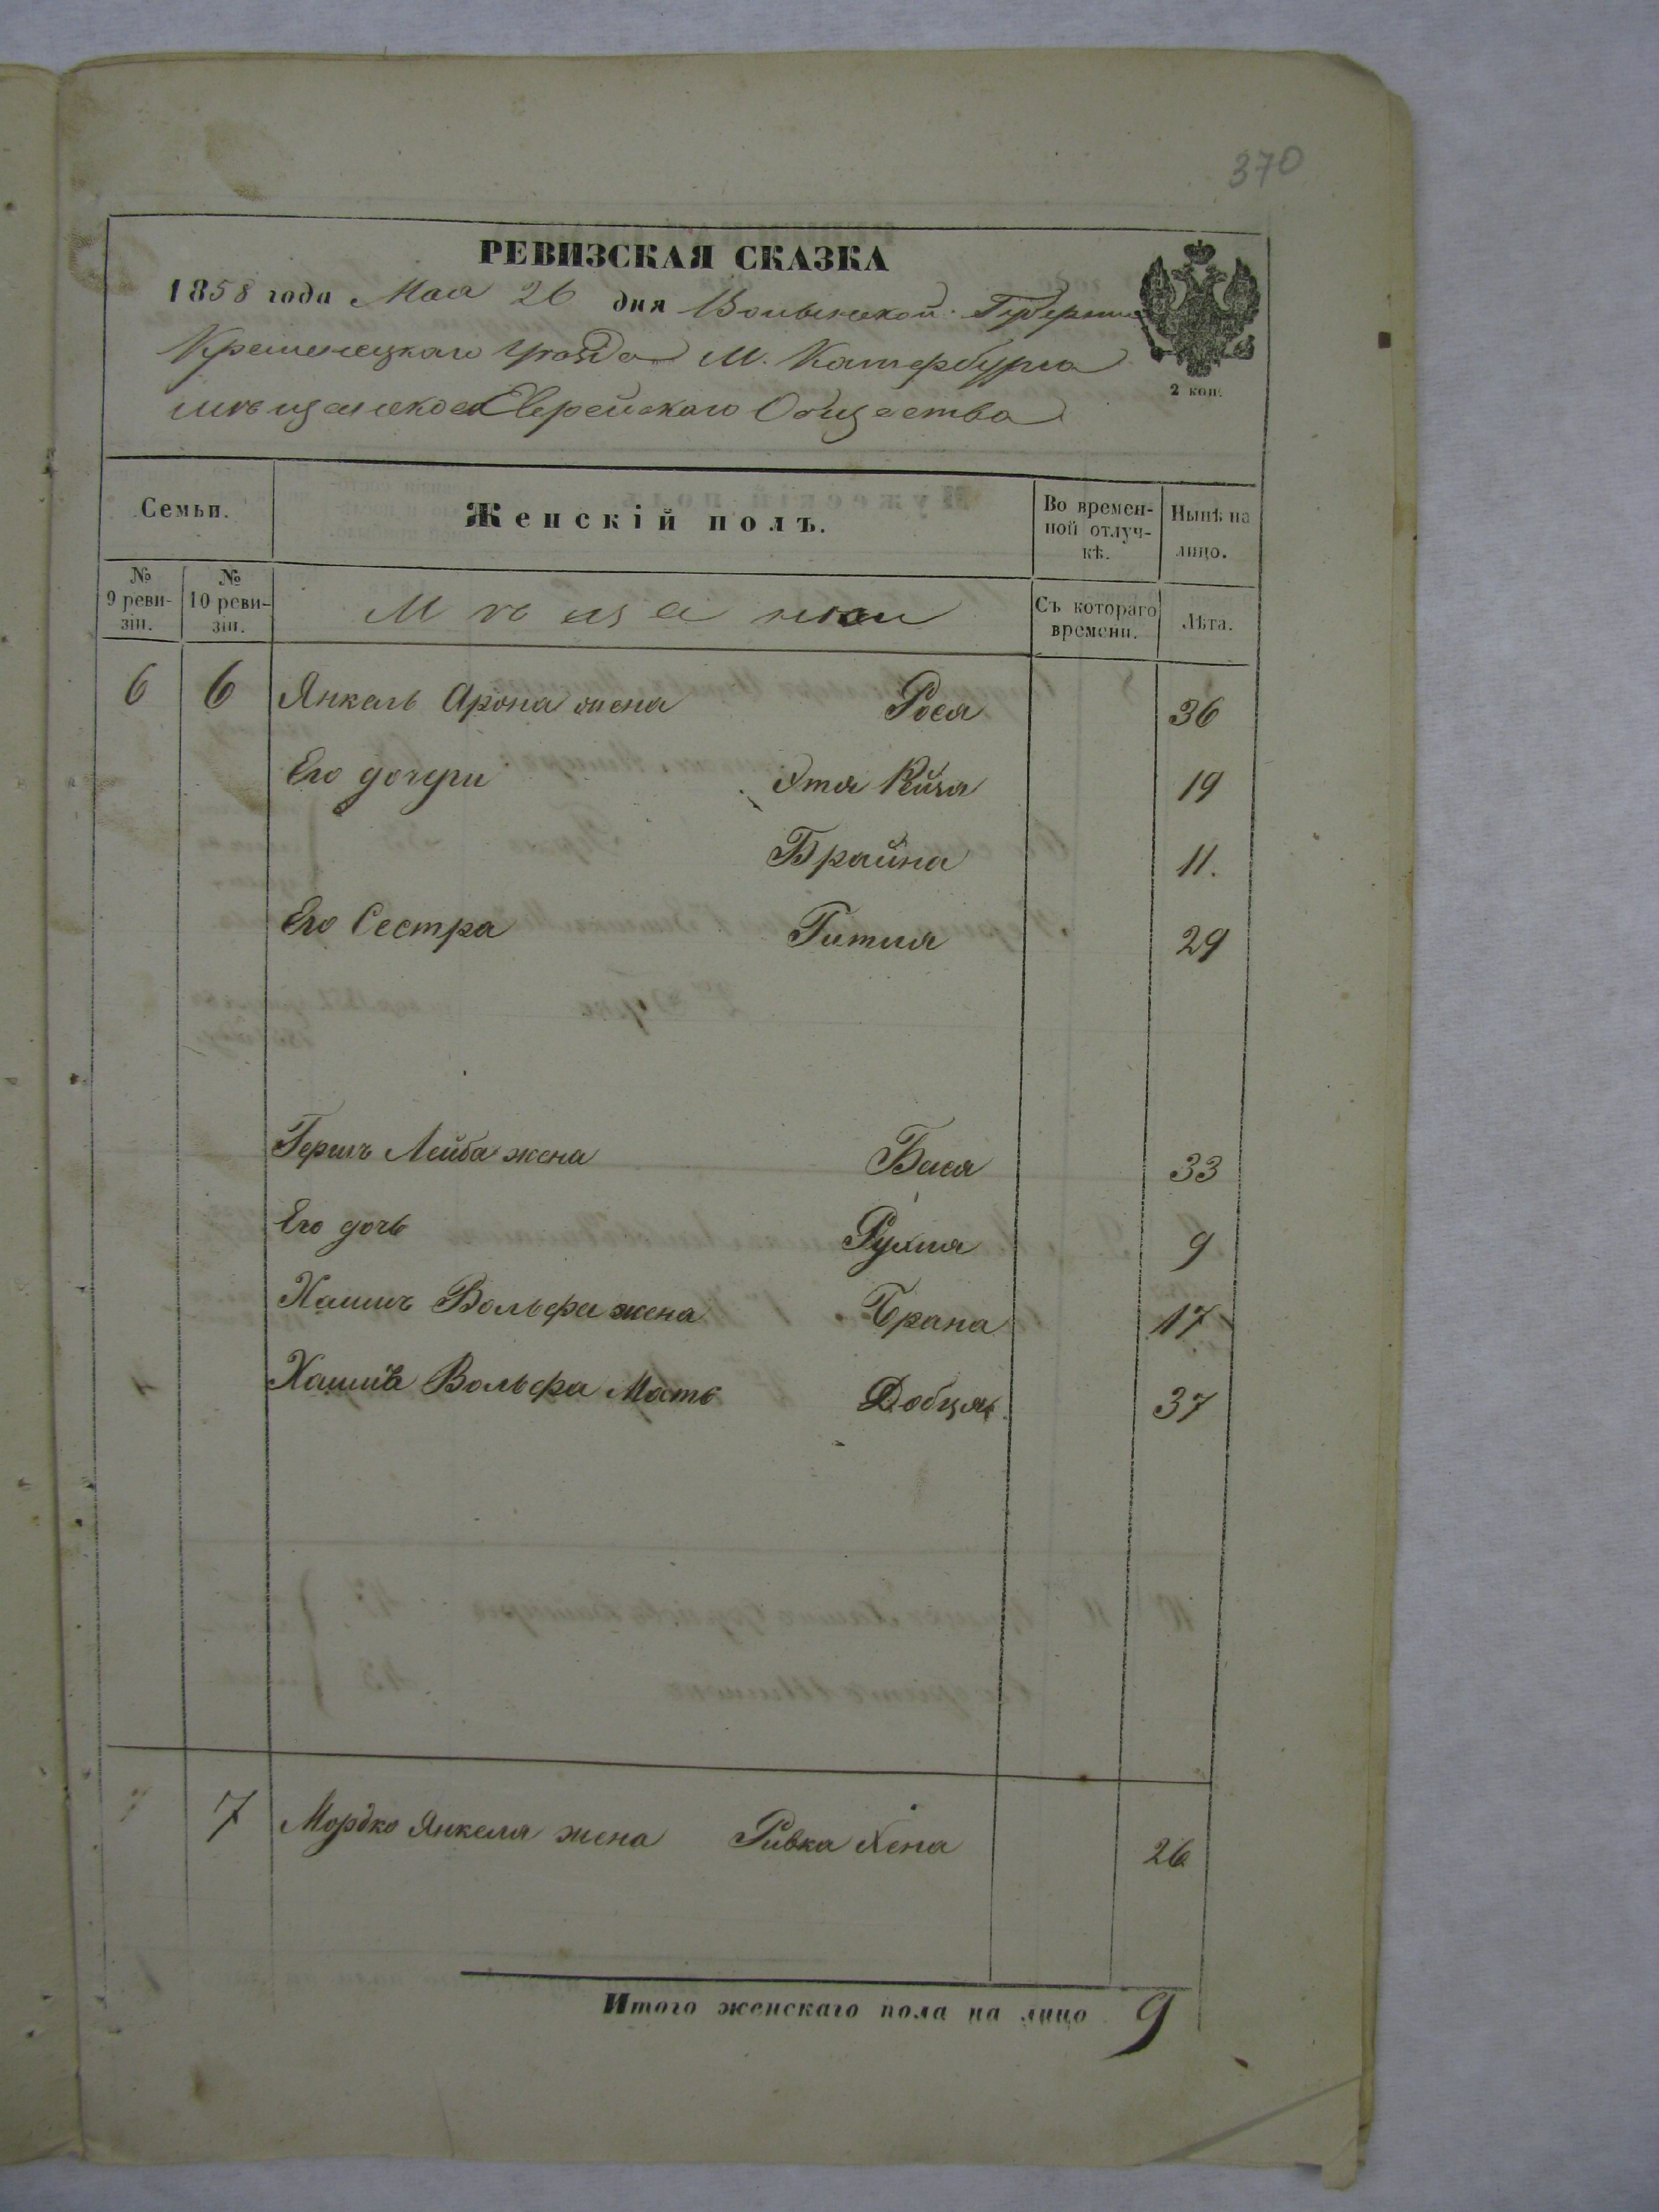 370
РЕВИЗСКАЯ СКАЗКА
1858 года Мая 26 дня Волынской Губернии
Кременецкаго уѣзда М. Катербурга
мѣщанскаго Еврейскаго Общества
2 коп.
Семьи.
Женскій полъ.
Во времен-
ной отлуч-
кѣ.
Нынѣ на
лицо.
№
9 реви-
зіи.
№
10 реви-
зіи.
Мѣщанки
Съ котораго
времени.
Лѣта.
6 6 Янкель Арона жена Рося 36
Его дочери Этя Рейзя 19
Брайна 11.
Его Сестра Гитля 29
Гершъ Лейба жена Бася 33
Его дочь Рухля 9
Хаимъ Вольфа жена Брана 17
Хаима Вольфа Мать Добця 37
7 7 Мордко Янкеля жена Ривка Хена 26
Итого женскаго пола на лицо 9